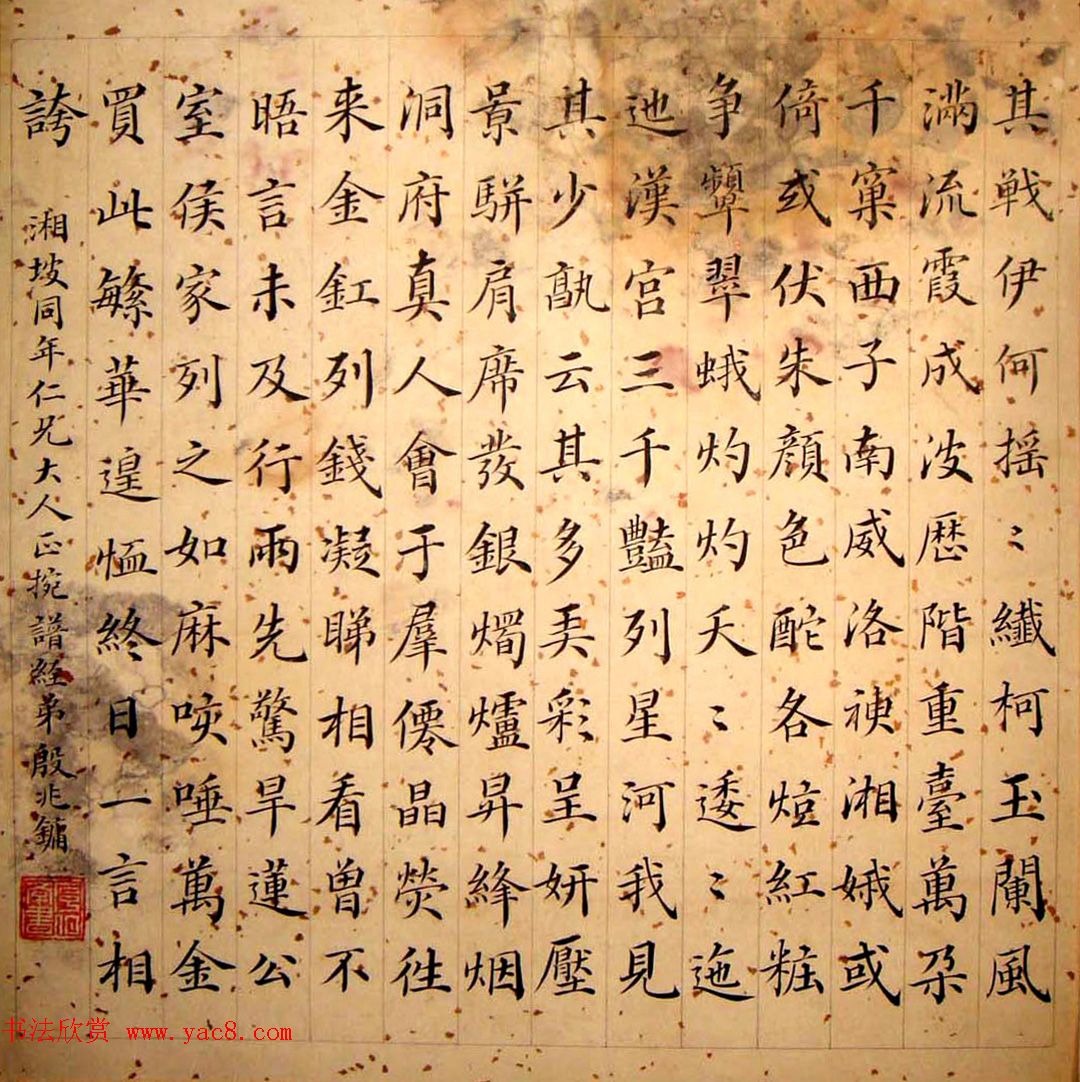 其戦伊何揺〻纖柯玉闌風
滿流霞成波歷階重臺萬朶
千窠西子南威洛神湘娥或
倚或伏朱顔色酡各炫紅粧
争顰翠蛾灼灼夭〻逶〻迤
迆漢宫三千豔列星河我見
其少孰云其多弄彩呈妍壓
景駢肩席發銀燭爐昇絳烟
洞府真人會于羣僊晶熒往
来金釭列錢凝睇相看曽不
晤言未及行雨先驚旱蓮公
室侯家列之如麻咳唾萬金
買此繁華遑恤終日一言相
誇
湘坡同年仁兄大人正挽譜經弟殷兆鏞
书法欣赏 www.yac8.com